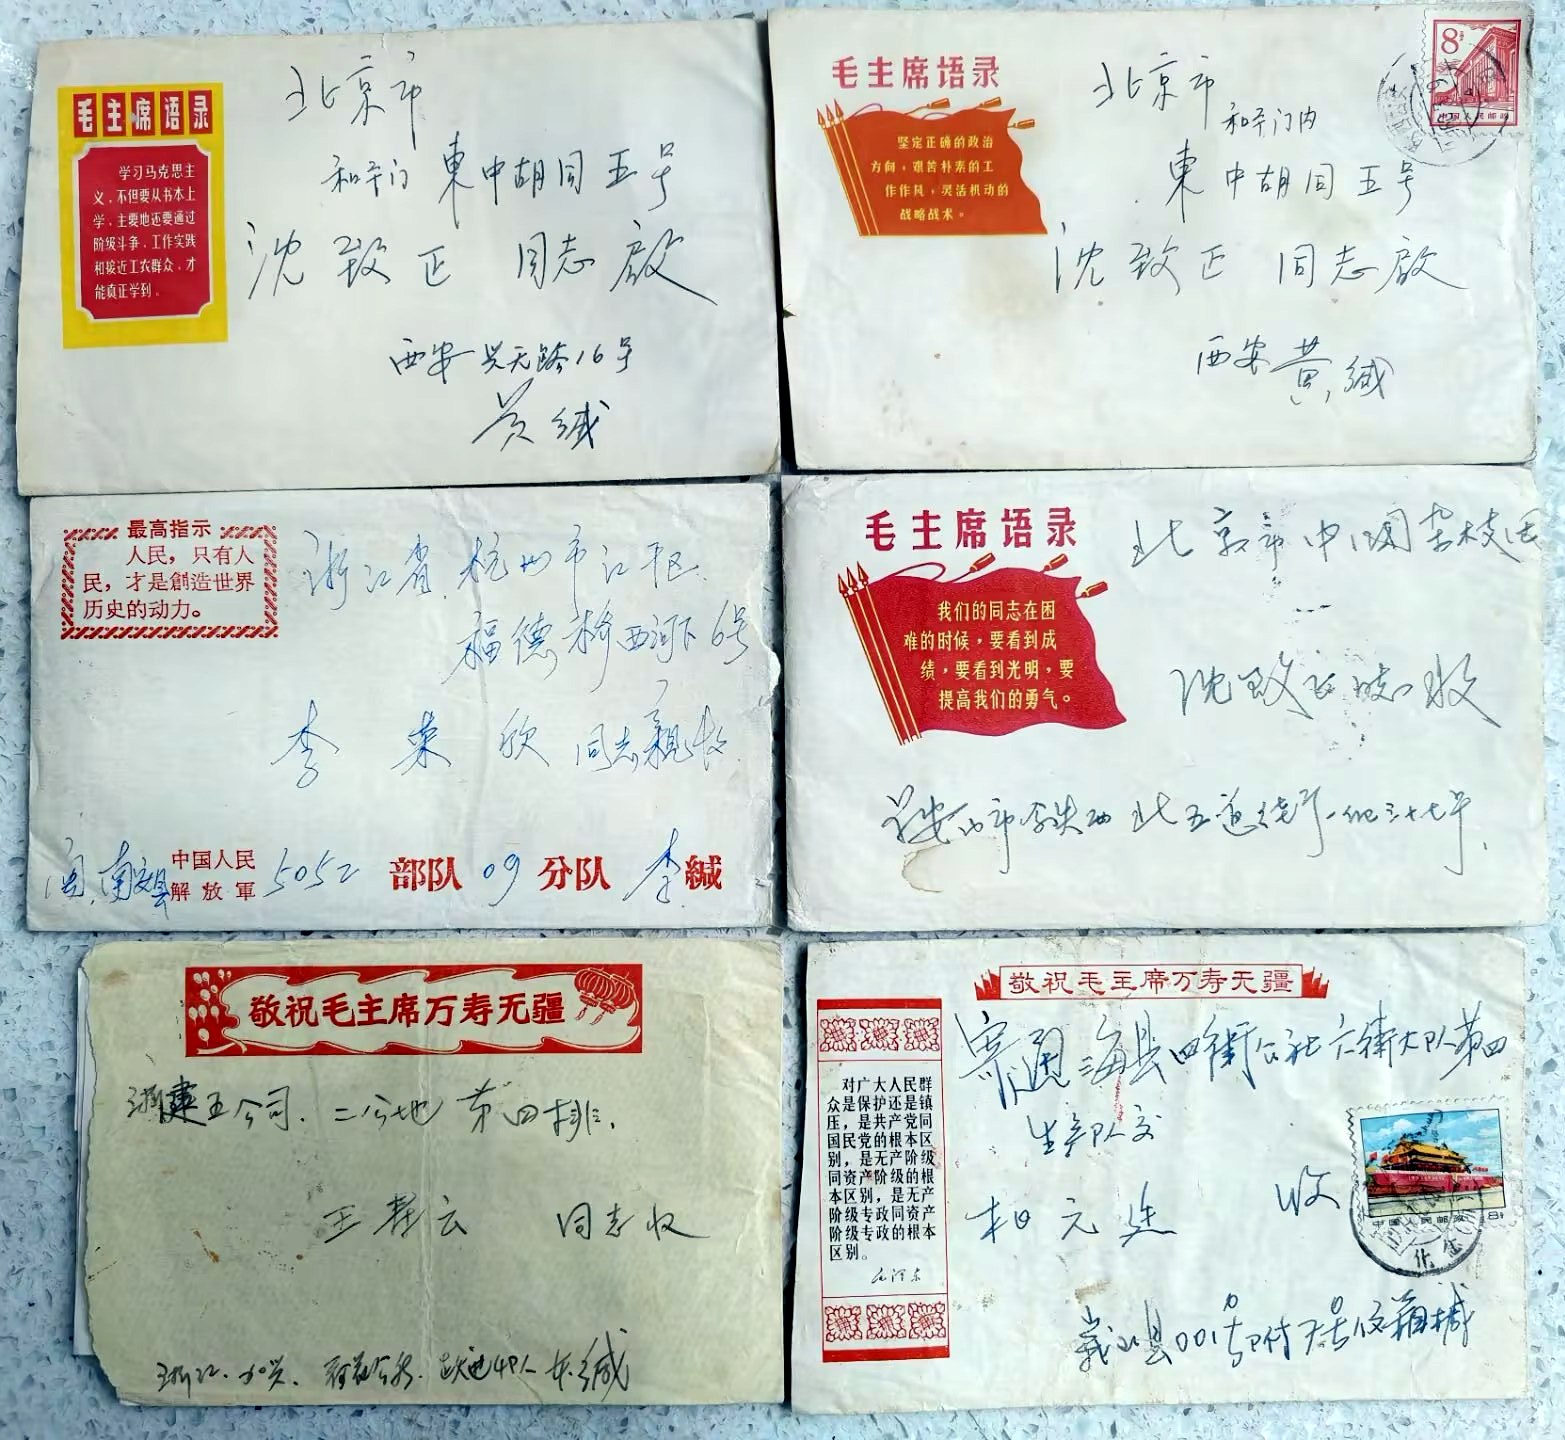 毛主席语录
学习马克思主
义，不但要从书本上
学，主要地还要通过
阶级斗争、工作实践
和接近工农群众，才
能真正学到。
北京市
和平门 東中胡同 五号
沈致正 同志啟
西安 兴无路16号
黄缄
毛主席语录
坚定正确的政治
方向，艰苦朴素的工
作作风，灵活机动的
战略战术。
8分
中国人民邮政
北京市
和平门内
東中胡同 五号
沈致正 同志啟
西安 黄缄
最高指示
人民，只有人
民，才是創造世界
历史的动力。
浙江省 杭州市江干区
福德桥西河下6号
李荣欣 同志親收
中国人民
解放軍 5052 部队 09 分队 李 缄
毛主席语录
我们的同志在困
难的时候，要看到成
绩，要看到光明，要
提高我们的勇气。
北京市 中国杂技团
沈致正同志收
鞍山市 铁西 北五道街
敬祝毛主席万寿无疆
浙建五公司．二分地 第四排．
王 云 同志收
浙江．绍兴． 缄
敬祝毛主席万寿无疆
对广大人民群
众是保护还是镇
压，是共产党同
国民党的根本区
别，是无产阶级
同资产阶级的根
本区别，是无产
阶级专政同资产
阶级专政的根本
区别。
毛泽东
寄通海县四街公社六街大队第四
生产队交
柏元 收
中国人民邮政 8分
峨山县001号附7号信箱缄